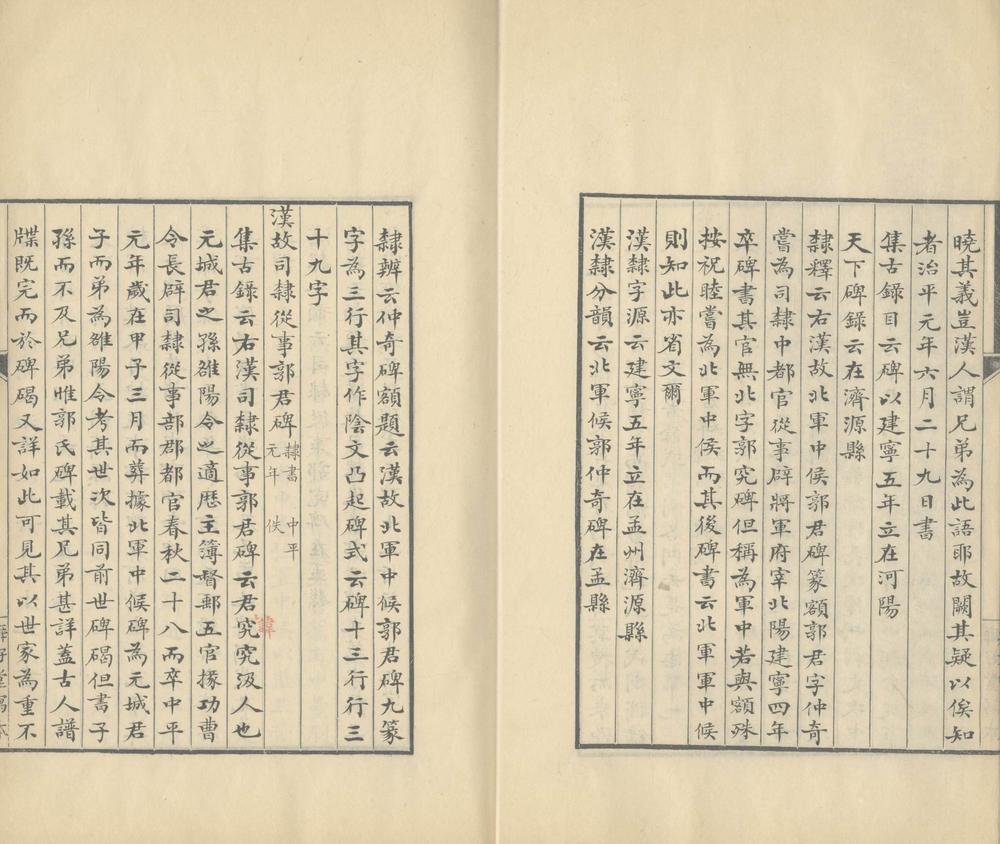 曉其義豈漢人謂兄弟為此語耶故闕其疑以俟知
者治平元年六月二十九日書
集古錄目云碑以建寧五年立在河陽
天下碑錄云在濟源縣
隸釋云右漢故北軍中侯郭君碑篆額郭君字仲奇
嘗為司隸中都官從事辟將軍府宰北陽建寧四年
卒碑書其官無北字郭究碑但稱為軍中若與額殊
按祝睦嘗為北軍中侯而其後碑書云北軍軍中候
則知此亦省文爾
漢隸字源云建寧五年立在孟州濟源縣
漢隸分韻云北軍候郭仲奇碑在孟縣
隸辨云仲奇碑額題云漢故北軍中候郭君碑九篆
字為三行其字作陰文凸起碑式云碑十三行行三
十九字
漢故司隸從事郭君碑隸書 中平元年 佚
集古錄云右漢司隸從事郭君碑云君究究汲人也
諱
元城君之孫雒陽令之適歷主簿督郵五官掾功曹
令長辟司隸從事部郡都官春秋二十八而卒中平
元年歲在甲子三月而葬據北軍中候碑為元城君
子而弟為雒陽令考其世次皆同前世碑碣但書子
孫而不及兄弟惟郭氏碑載其兄弟甚詳蓋古人譜
牒既完而於碑碣又詳如此可見其以世家為重不